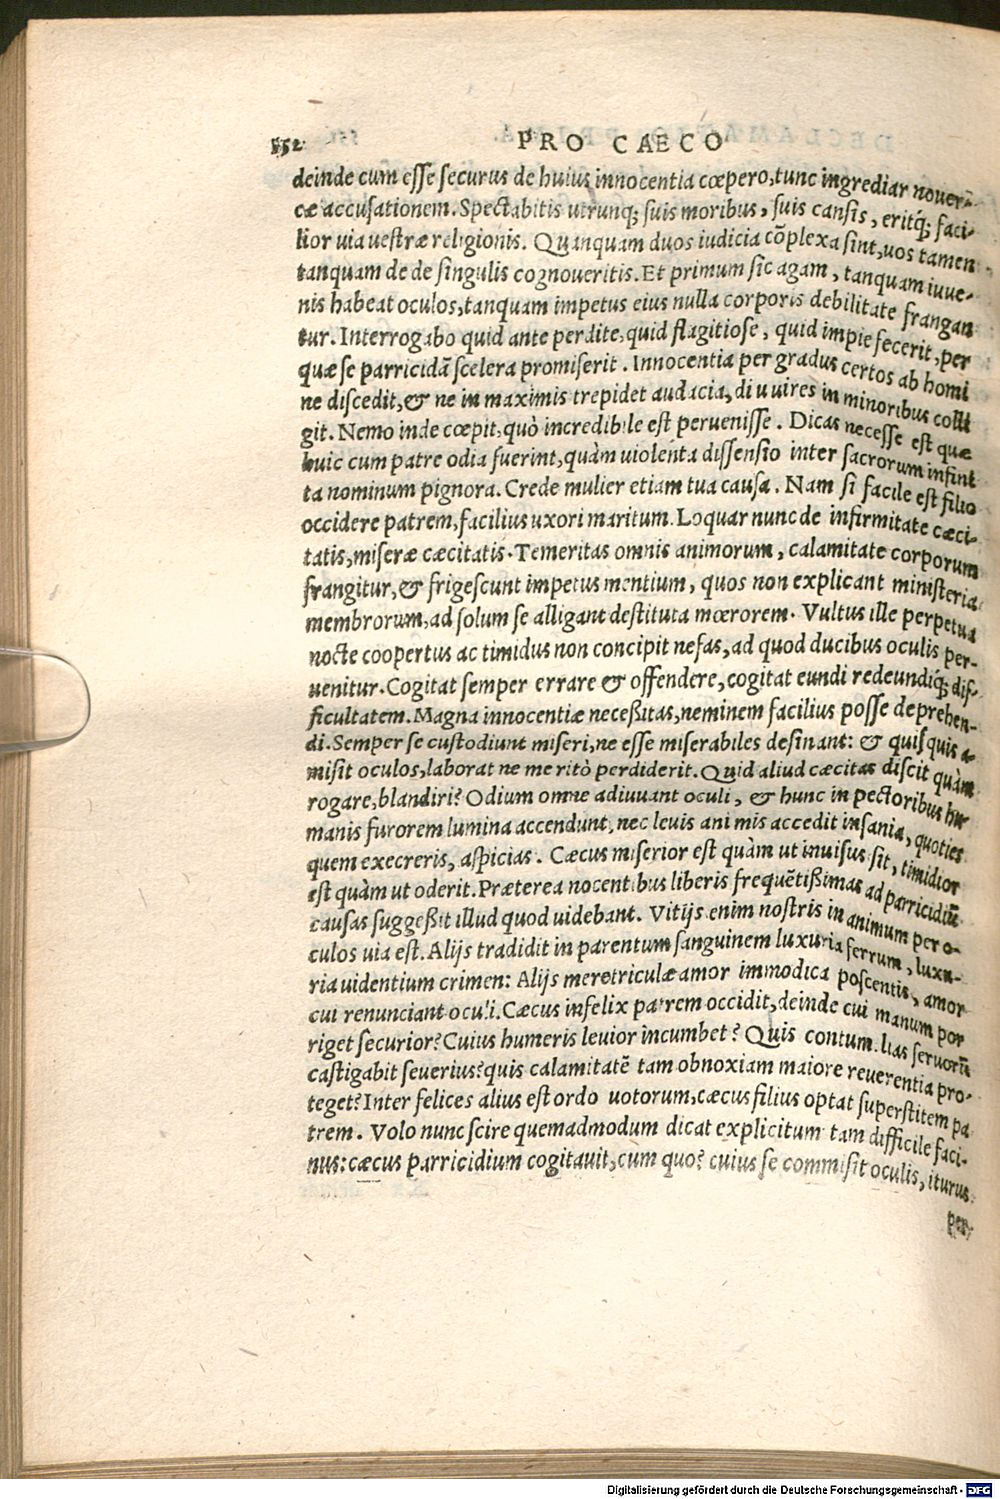 552 PRO CAECO
deinde cum esse securus de huius innocentia cœpero, tunc ingrediar nouer-
cæ accusationem. Spectabitis utrunq; suis moribus, suis cansis, eritq́; faci-
lior uia uestræ religionis. Quanquam duos iudicia cõplexa sint, uos tamen
tanquam de de singulis cognoueritis. Et primum sic agam, tanquam iuue-
nis habeat oculos, tanquam impetus eius nulla corporis debilitate frangan
tur. Interrogabo quid ante perdite, quid flagitiose, quid impie fecerit, per
quæ se parricidã scelera promiserit. Innocentia per gradus certos ab homi
ne discedit, & ne in maximis trepidet audacia, diu uires in minoribus colli
git. Nemo inde cœpit, quò incredibile est peruenisse. Dicas necesse est quæ
huic cum patre odia fuerint, quàm uiolenta dissensio inter sacrorum infini
ta nominum pignora. Crede mulier etiam tua causa. Nam si facile est filio
occidere patrem, facilius uxori maritum. Loquar nunc de infirmitate cæci-
tatis, miseræ cæcitatis. Temeritas omnis animorum, calamitate corporum
frangitur, & frigescunt impetus mentium, quos non explicant ministeria
membrorum, ad solum se alligant destituta mœrorem. Vultus ille perpetua
nocte coopertus ac timidus non concipit nefas, ad quod ducibus oculis per-
uenitur. Cogitat semper errare & offendere, cogitat eundi redeundiq́; dif-
ficultatem. Magna innocentiæ necessitas, neminem facilius posse deprehen-
di. Semper se custodiunt miseri, ne esse miserabiles desinant: & quisquis a-
misit oculos, laborat ne meritò perdiderit. Quid aliud cæcitas discit quàm
rogare, blandiri? Odium omne adiuuant oculi, & hunc in pectoribus hu-
manis furorem lumina accendunt, nec leuis animis accedit insania, quoties
quem execreris, aspicias. Cæcus miserior est quàm ut inuisus sit, timidior
est quàm ut oderit. Præterea nocentibus liberis frequẽtissimas ad parricidiũ
causas suggessit illud quod uidebant. Vitijs enim nostris in animum per o-
culos uia est. Alijs tradidit in parentum sanguinem luxuria ferrum, luxu-
ria uidentium crimen: Alijs meretriculæ amor immodica poscentis, amor
cui renunciant oculi. Cæcus infelix patrem occidit, deinde cui manum por
riget securior? Cuius humeris leuior incumbet? Quis contumelias seruorũ
castigabit seuerius? quis calamitatẽ tam obnoxiam maiore reuerentia pro-
teget? Inter felices alius est ordo uotorum, cæcus filius optat superstitem pa
trem. Volo nunc scire quemadmodum dicat explicitum tam difficile faci-
nus: cæcus parricidium cogitauit, cum quo? cuius se commisit oculis, iturus
per
Digitalisierung gefördert durch die Deutsche Forschungsgemeinschaft - DFG